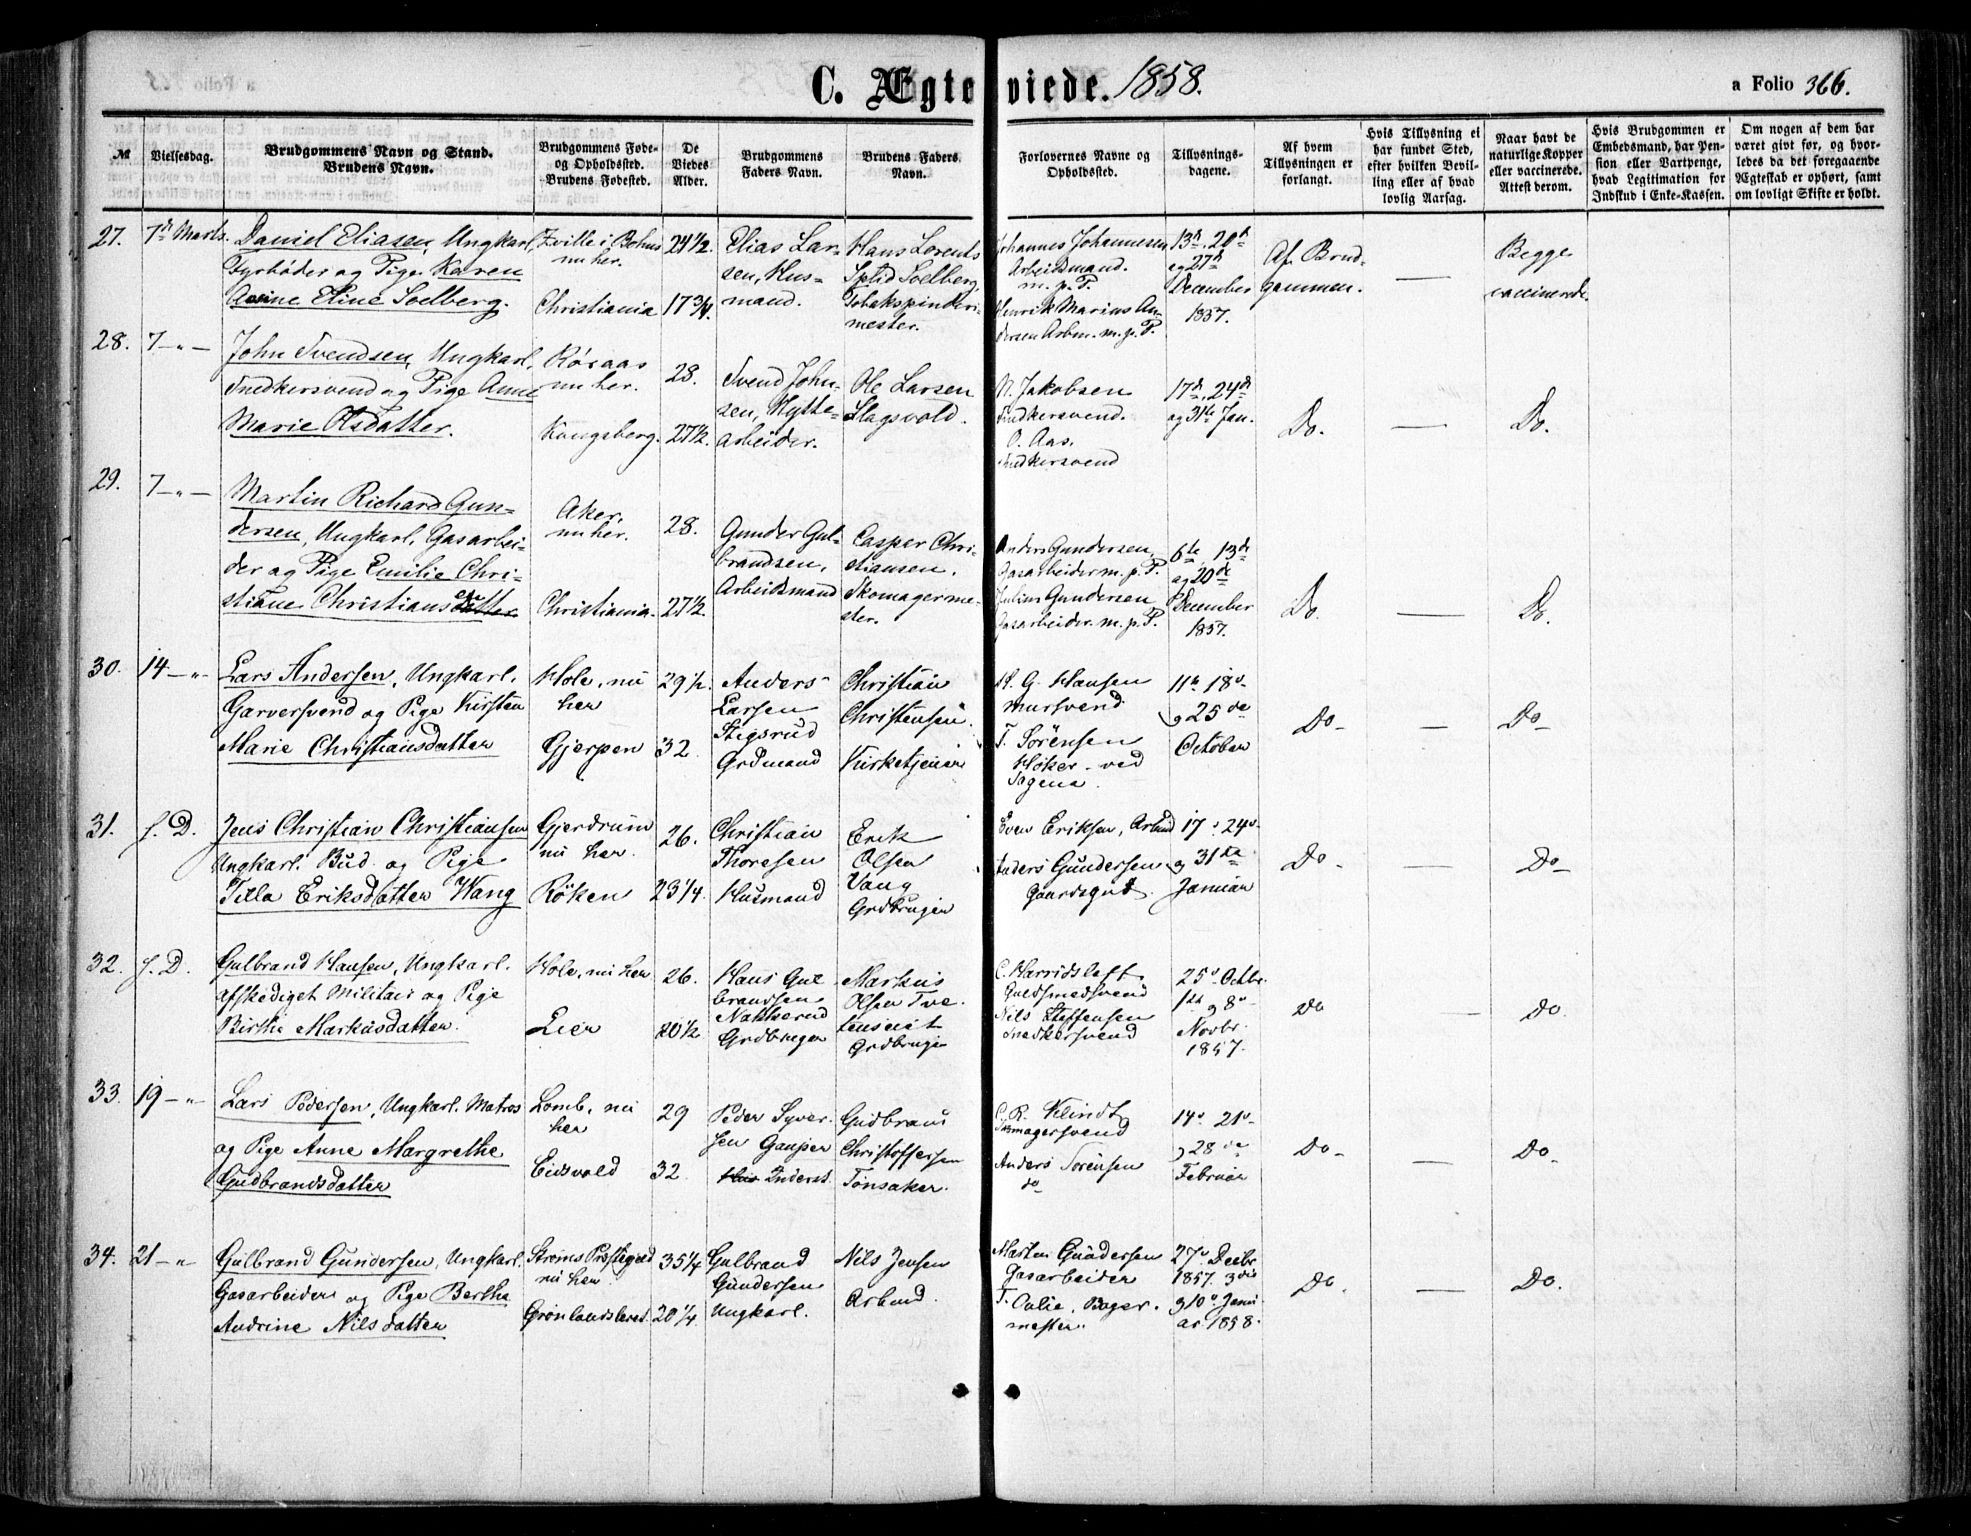 C. Ægteviede. 1858.
a Folio 366.
№
Vielsesdag.
Brudgommens Navn og Stand.
Brudens Navn.
Brudgommens Føde-
og Opholdssted.
Brudens Fødested.
De
Viedes
Alder.
Brudgommens
Faders Navn.
Brudens Faders
Navn.
Forlovernes Navne og
Opholdssted.
Tillysnings-
dagene.
Af hvem
Tillysningen er
forlangt.
Hvis Tillysning ei
har fundet Sted,
efter hvilken Bevil-
ling eller af hvad
lovlig Aarsag.
Naar havt de
naturlige Kopper
eller vaccinerede.
Attest derom.
Hvis Brudgommen er
Embedsmand, har Pen-
sion eller Vartpenge,
hvad Legitimation for
Indskud i Enke-Kassen.
Om nogen af dem har
været givt før, og hvor-
ledes da det foregaaende
Ægteskab er ophørt, samt
om lovligt Skifte er holdt.
27.
7de Marts.
Daniel Eliasen, Ungkarl,
Fyrbøder og Pige Karen
Eline Solberg.
i Bohus
nu her.
Christiania
24 1/2.
17 3/4.
Elias Lar-
sen, Hus-
mand.
Hans Lorents
Solberg,
Tobakspinderi-
mester.
Johannes Johannesen
Arbeidsmand.
m. p. P.
Henrik Marius An-
dersen Arbm. m. p. P.
13de, 20de
og 27de
December
1857.
Af Brud-
gommen.
—
Begge
vaccinerede.
28.
7 - „ -
John Svendsen, Ungkarl,
Snedkersvend og Pige Anne
Marie Olsdatter.
Røraas
nu her.
Kongsberg.
28.
27 1/2.
Svend John-
sen, Hytte-
arbeider.
Ole Larsen
Slagsvold.
N. Jakobsen
Snedkersvend.
O. Aas.
Snedkersvend
17de, 24de
og 31te Jan.
Do.
—
Do.
29.
7 - „ -
Martin Richard Gun-
dersen, Ungkarl, Gasarbei-
der og Pige Emilie Chri-
stiane
Aker,
nu her.
Christiania.
28.
27 1/2.
Gunder Gul-
brandsen,
Arbeidsmand
Casper Chri-
stiansen,
Skomagerme-
ster.
Anders Gundersen,
Gasarbeider m. p. P.
Julius Gundersen
Gasarbeider. m. p. P.
6te, 13de
og 20de
December
1857.
Do.
—
Do.
30.
14 - „
Lars Andersen, Ungkarl.
Garversvend og Pige Kirsten
Marie Christiansdatter
Hole, nu
her
Gjerpen
29 1/2.
32
Anders
Larsen
Stigsrud
Grdmand
Christian
Christensen.
Kirketjener
H. G. Hansen
Mursvend
T. Sörensen
Höker ved
Sagene.
11te 18de
og 25de
October
Do
—
Do
31.
s. D.
Jens Christian Christiansen
Ungkarl. Bud og Pige
Tilla Eriksdatter Wang
Gjerdrum
nu her.
Röken
26.
23 1/4.
Christian
Thoresen
Husmand
Erik
Olsen
Vang
Grdbruger
Even Eriksen, Arbmd
Anders Gundersen
Gaardsgut.
17de 24de
og 31te
Januar
Do
—
Do
32.
s. D.
Gulbrand Hansen, Ungkarl.
afskediget Militair og Pige
Birthe Markusdatter.
Hole, nu her
Lier
26.
20 1/2
Hans Gul
brandsen
Nakkerud
Grdbruger
Markus
Olsen Tve-
Grdbruger
C. Harridsleff
Guldsmedsvend
Nils Steffensen
Snedkersvend
25de Octbr.
1ste og 8de
Novbr.
1857.
Do
—
Do.
33.
19 - „
Lars Pedersen, Ungkarl. Matros
og Pige Anne Margrethe
Gudbrandsdatter
Lomb, nu
her
Eidsvold
29
32
Peder Syver-
sen Gaupen
Inderst.
Gudbrand
Christoffersen
Tönsaker.
C. R. Klindt
Skomagersvend
Anders Sorensen
do
14de 21de
og 28de
Februar
Do
—
Do
34.
21 - „
Gulbrand Gundersen, Ungkarl.
Gasarbeider og Pige Berthe
Andrine Nilsdatter
Ströms Præstegjeld
nu her
Grönlandsleret.
35 1/4
20 1/4
Gulbrand
Gundersen
Ungkarl.
Nils Jensen
Arbmd.
Martin Gundersen
Gasarbeider
T. Oulie, Bager-
mester.
27de Decbr
1857. 3die
og 10de Janu
ar 1858.
Do.
—
Do.